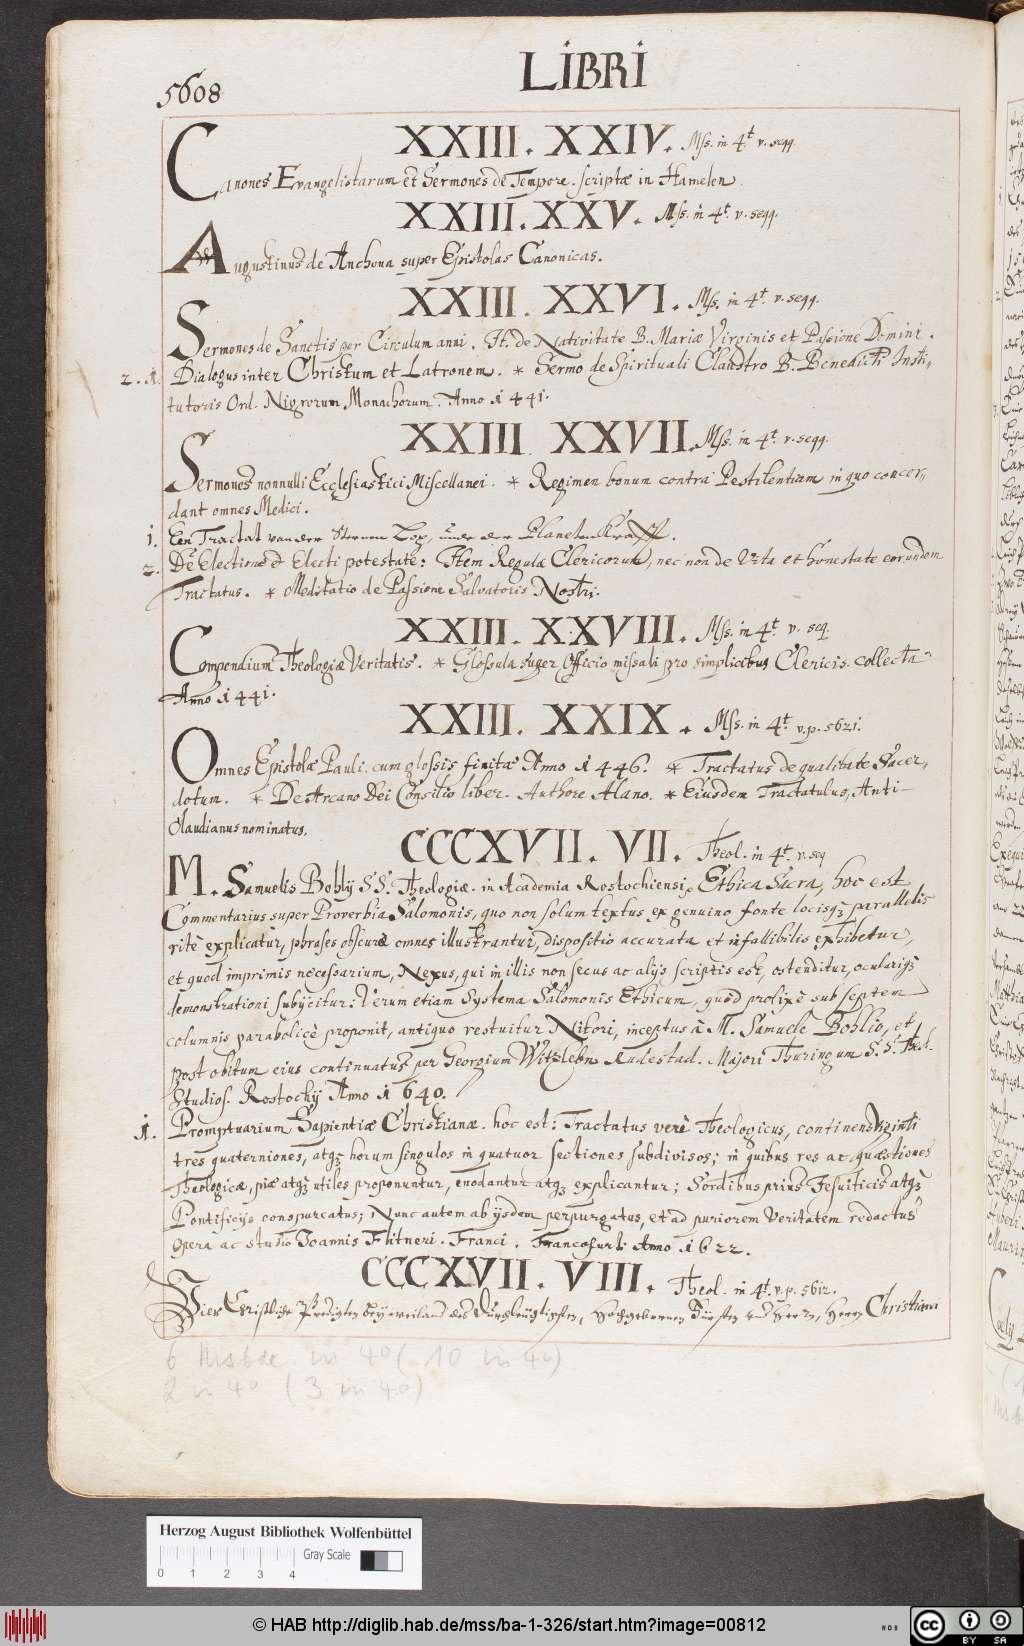 5608
LIBRI
XXIII. XXIV. Mss. in 4t. v. seqq.
Canones Evangelistarum et Sermones de Tempore. scriptæ in Hamelen.
XXIII. XXV. Mss. in 4t. v. seqq.
Augustinus de Anchona super Epistolas Canonicas.
XXIII. XXVI. Mss. in 4t. v. seqq.
Sermones de Sanctis per Circulum anni. It. de Nativitate B. Mariæ Virginis et Passione Domini.
2. 1. Dialogus inter Christum et Latronem. * Sermo de Spirituali Claustro B. Benedicti Insti-
tutoris Ord. Nigrorum Monachorum. Anno 1441.
XXIII XXVII. Mss. in 4t. v. seqq.
Sermones nonnulli Ecclesiastici Miscellanei. * Regimen bonum contra Pestilentiam in quo concor-
dant omnes Medici.
1. Een Tractat van der Sternen Lop, unde der Planeten Krafft.
2. De Electione et Electi potestate: Item Regulæ Clericorum, nec non de Vita et honestate eorundem
Tractatus. * Meditatio de Passione Salvatoris Nostri.
XXIII. XXVIII. Mss. in 4t. v. seq.
Compendium Theologiæ Veritatis. * Glossula super Officio missali pro simplicibus Clericis. collecta
Anno 1441.
XXIII. XXIX. Mss. in 4t. v. p. 5621.
Omnes Epistolæ Pauli cum glossis finitæ Anno 1446. * Tractatus de qualitate Sacer-
dotum. * De Arcano Dei Consilio liber. Authore Alano. * Eiusdem Tractatulus, Anti-
Claudianus nominatus.
CCCXVII. VII. Theol. in 4t. v. seq
M. Samuelis Bohlij SS. Theologiæ in Academia Rostochiensi, Ethica Sacra, hoc est
Commentarius super Proverbia Salomonis, quo non solum textus ex genuino fonte locisqꝫ parallelis
ritè explicatur, phrases obscuræ omnes illustrantur, dispositio accurata et infallibilis exhibetur,
et quod imprimis necessarium, Nexus, qui in illis non secus ac alijs scriptis est, ostenditur, oculariqꝫ
demonstrationi subijcitur: Verum etiam Systema Salomonis Ethicum, quod prolixè sub septem
columnis parabolicè proponit, antiquo restuitur Nitori, inceptus à M. Samuele Bohlio, et
post obitum eius continuatus per Georgium Witzlebn Rudestad. Majori Thuringum S.S. Theol.
Studios. Rostochij Anno 1640.
1. Promptuarium Sapientiæ Christianæ. hoc est: Tractatus verè Theologicus, continens Viginti
tres quaterniones, atqꝫ horum singulos in quatuor sectiones subdivisos; in quibus res ac quæstiones
Theologicæ, piæ atqꝫ utiles proponuntur, enodantur atqꝫ explicantur; Sordibus prius Jesuiticis atqꝫ
Pontificijs conspurcatus; Nunc autem ab ijsdem perpurgatus, et ad puriorem Veritatem redactus
opera ac studio Joannis Flitneri. Franci. Francofurti Anno 1622.
CCCXVII. VIII. Theol. in 4t. v. p. 5612.
Vier Christliche Predigten bey weiland des Durchleuchtigsten, Hochgebornen Fürsten und Herrn, Herrn Christiani
6 Msbde in 4° ( 10 in 4°)
2 in 4° ( 3 in 4°)
Herzog August Bibliothek Wolfenbüttel
Gray Scale
0 1 2 3 4
© HAB http://diglib.hab.de/mss/ba-1-326/start.htm?image=00812
cc BY SA